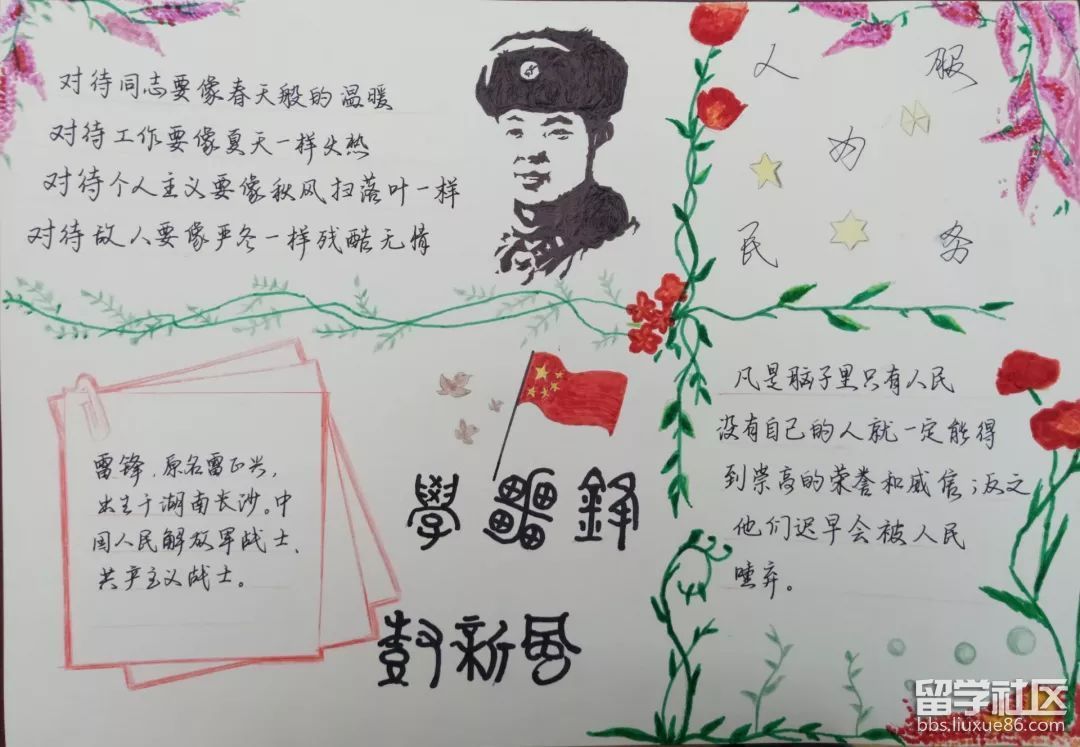 对待同志要像春天般的温暖
对待工作要像夏天一样火热
对待个人主义要像秋风扫落叶一样
对待故人要像严冬一样残酷无情
人 服
为
民 务
雷锋,原名雷正兴,
出生于湖南长沙。中
国人民解放军战士、
共产主义战士。
學靁鋒
樹新風
凡是脑子里只有人民
没有自己的人就一定能得
到崇高的荣誉和威信;反之
他们迟早会被人民
唾弃。
留学社区
bbs.liuxue86.com